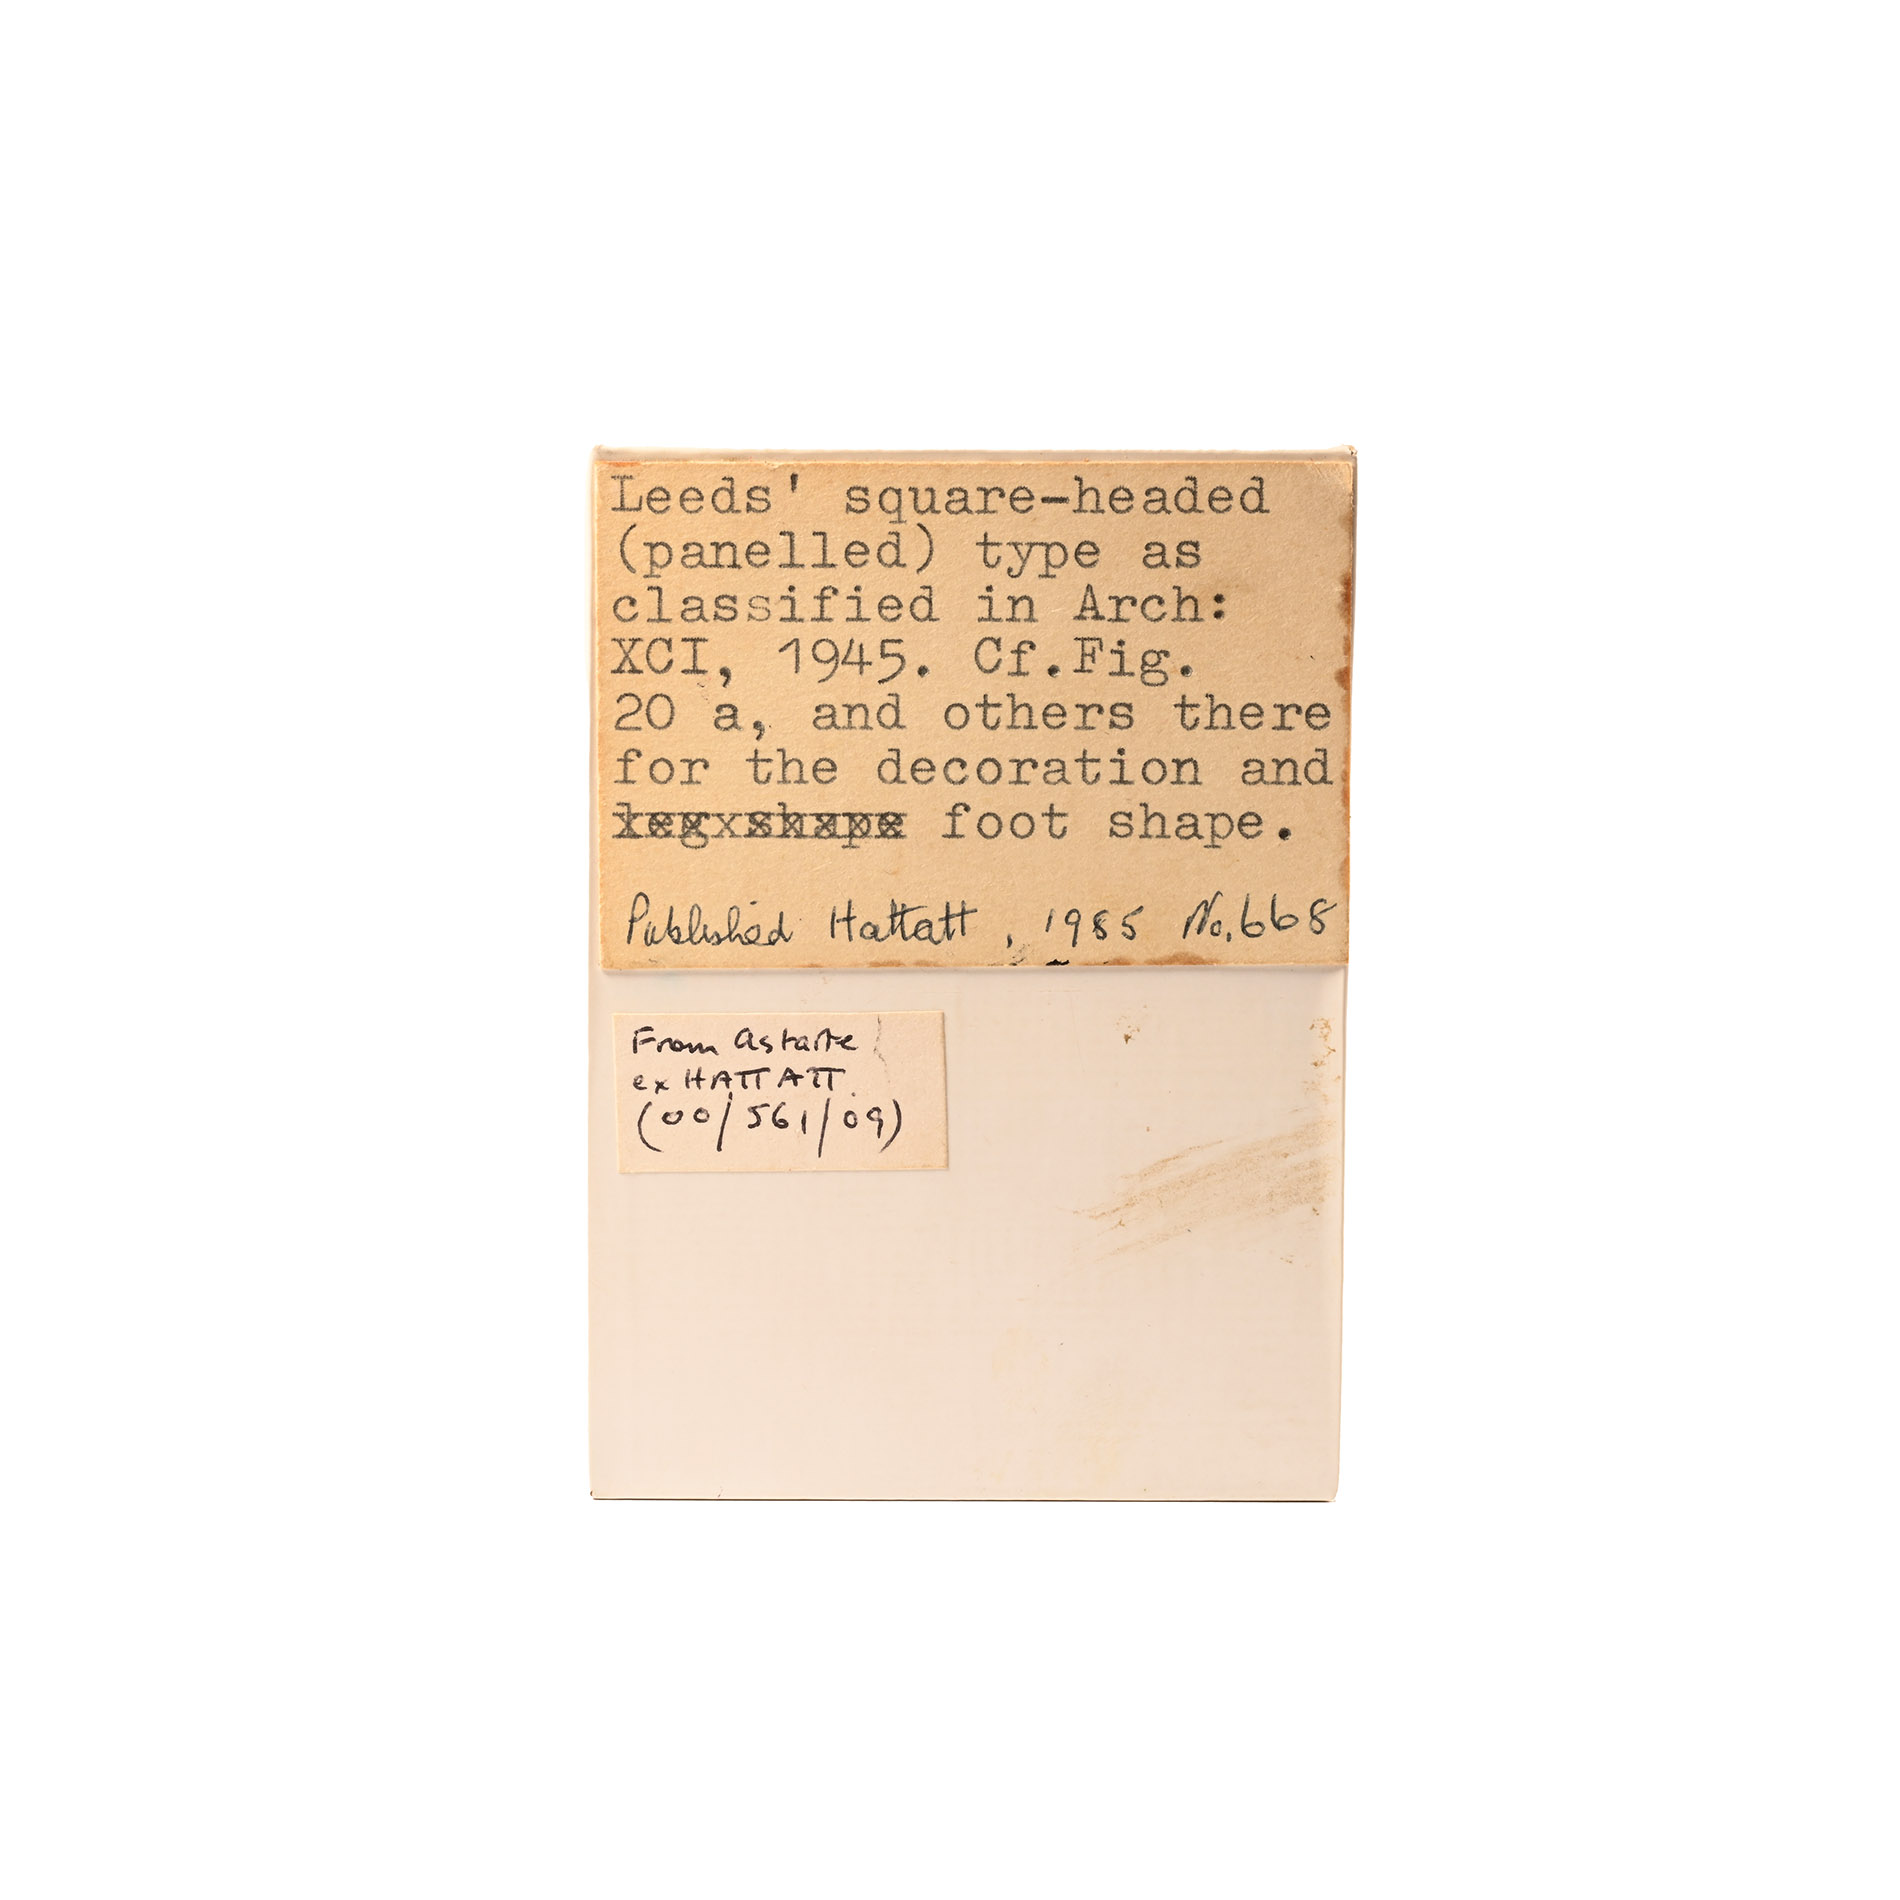 Leeds' square-headed
(panelled) type as
classified in Arch:
XCI, 1945. Cf.Fig.
20 a, and others there
for the decoration and
leg shape foot shape.
Published Hattatt, 1985 No.668
From Astarte
ex HATTATT
(00/561/09)